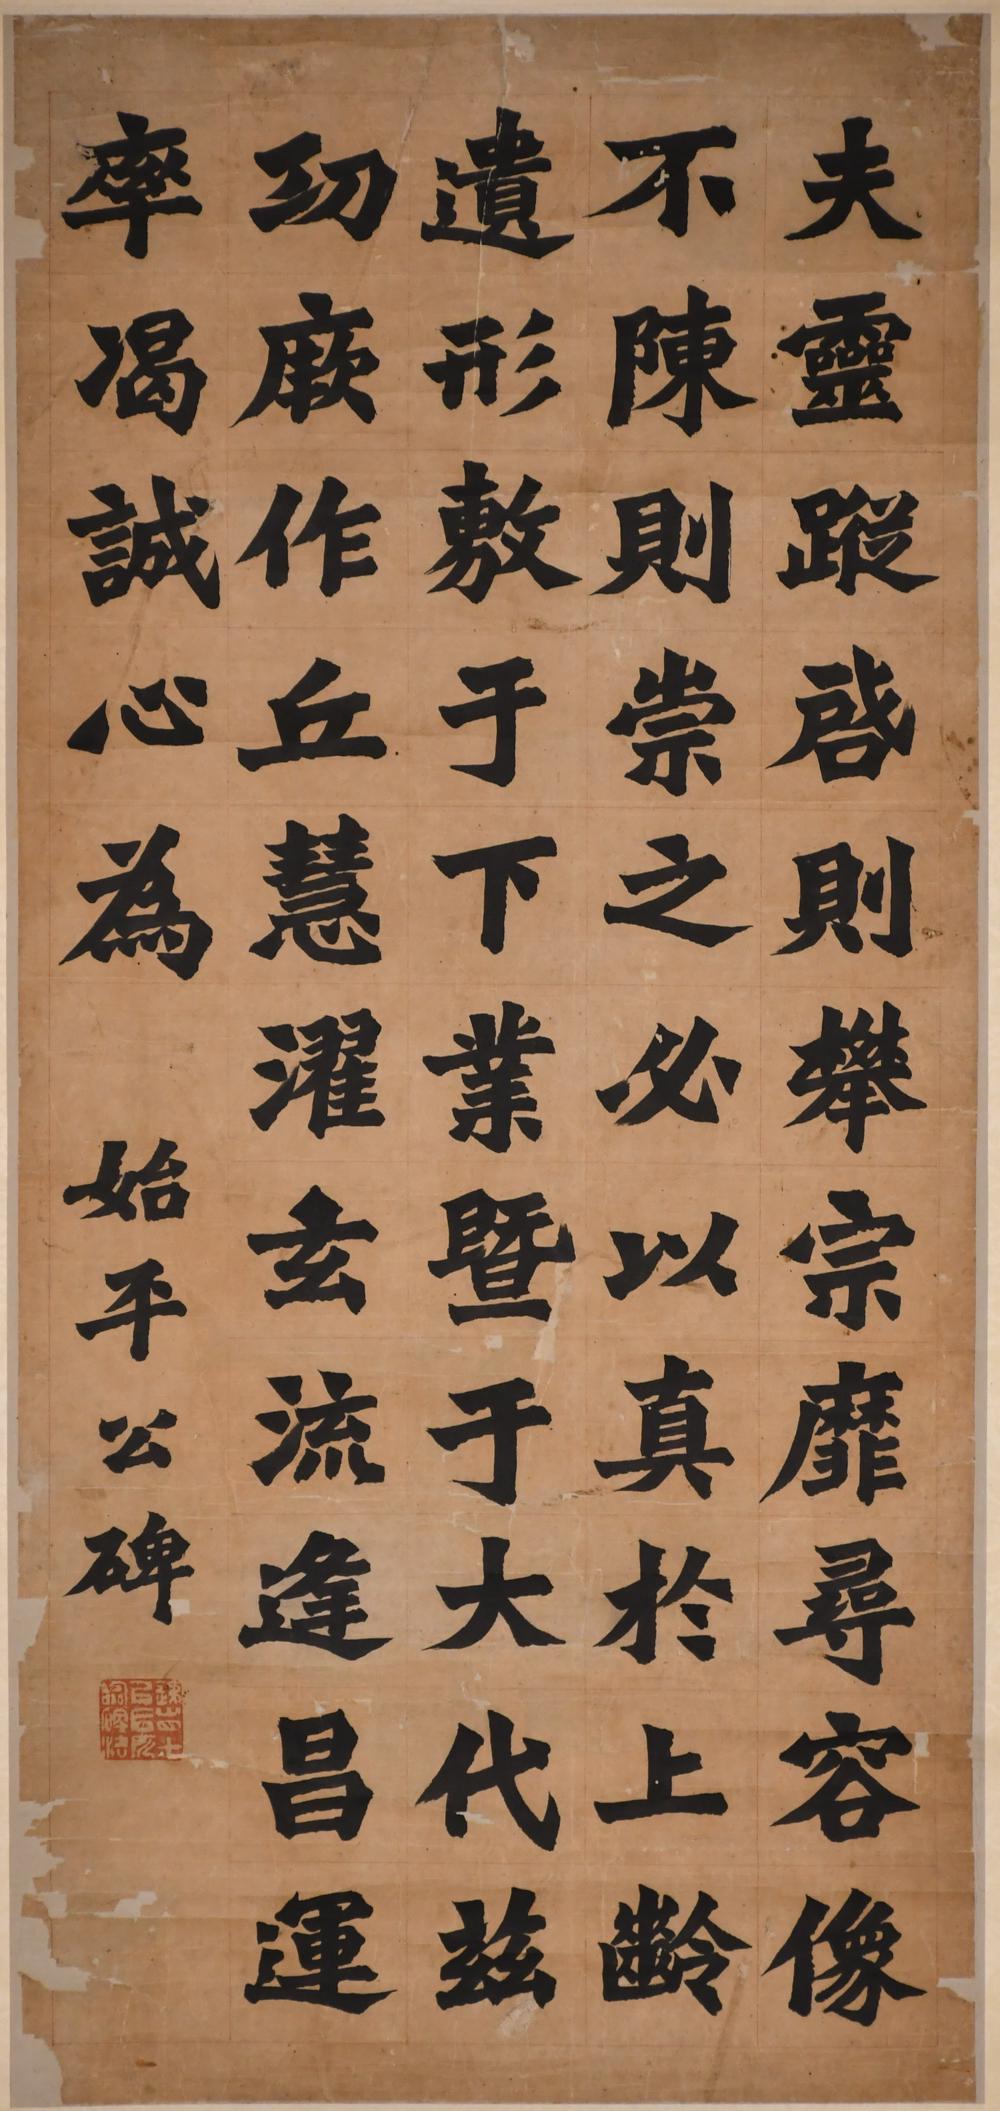 夫靈蹤啓則攀宗靡尋容像
不陳則崇之必以真於上齡
遺形敷于下業暨于大代茲
㓛厥作丘慧濯玄流逢昌運
率渴誠心為
始平公碑